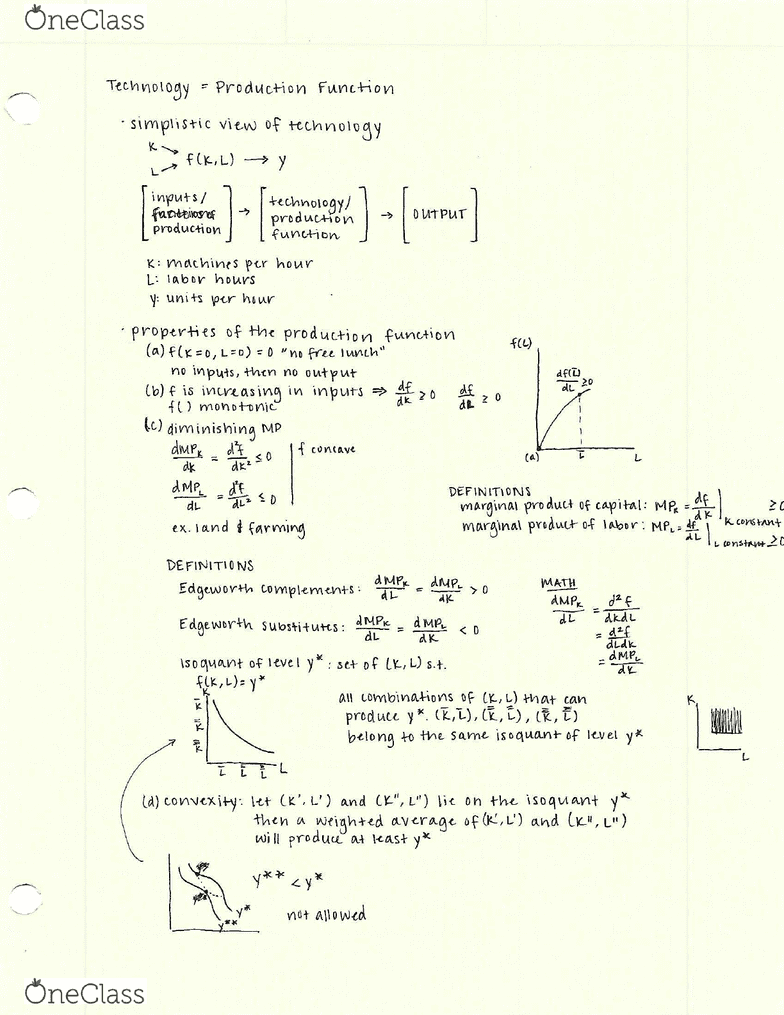 OneClass
Technology = Production Function
· simplistic view of technology
K
L
f(K,L) → y
[inputs/ production] → [technology/ production function] → [OUTPUT]
K: machines per hour
L: labor hours
y: units per hour
· properties of the production function
(a) f(K=0, L=0) = 0 "no free lunch"
no inputs, then no output
(b) f is increasing in inputs ⇒ df/dK ≥ 0 df/dL ≥ 0
f() monotonic
(c) diminishing MP
dMP_K/dK = d²f/dK² ≤ 0 | f concave
dMP_L/dL = d²f/dL² ≤ 0
ex. land & farming
f(L)
df(L̄)/dL ≥ 0
(a) L̄ L
DEFINITIONS
marginal product of capital: MP_K = df/dK | K constant ≥ 0
marginal product of labor: MP_L = df/dL | L constant ≥ 0
DEFINITIONS
Edgeworth complements: dMP_K/dL = dMP_L/dK > 0
Edgeworth substitutes: dMP_K/dL = dMP_L/dK < 0
MATH
dMP_K/dL = d²f/dKdL
= d²f/dLdK
= dMP_L/dK
isoquant of level y*: set of (K,L) s.t.
f(K,L) = y*
K
K̄
K̿
K̿
L̄ L̄ L̿ L
all combinations of (K,L) that can
produce y*. (K̄,L̄), (K̿,L̿), (K̿,L̿)
belong to the same isoquant of level y*
K
L
(d) convexity: let (K',L') and (K",L") lie on the isoquant y*
then a weighted average of (K',L') and (K",L")
will produce at least y*
y** < y*
y*
y**
not allowed
OneClass